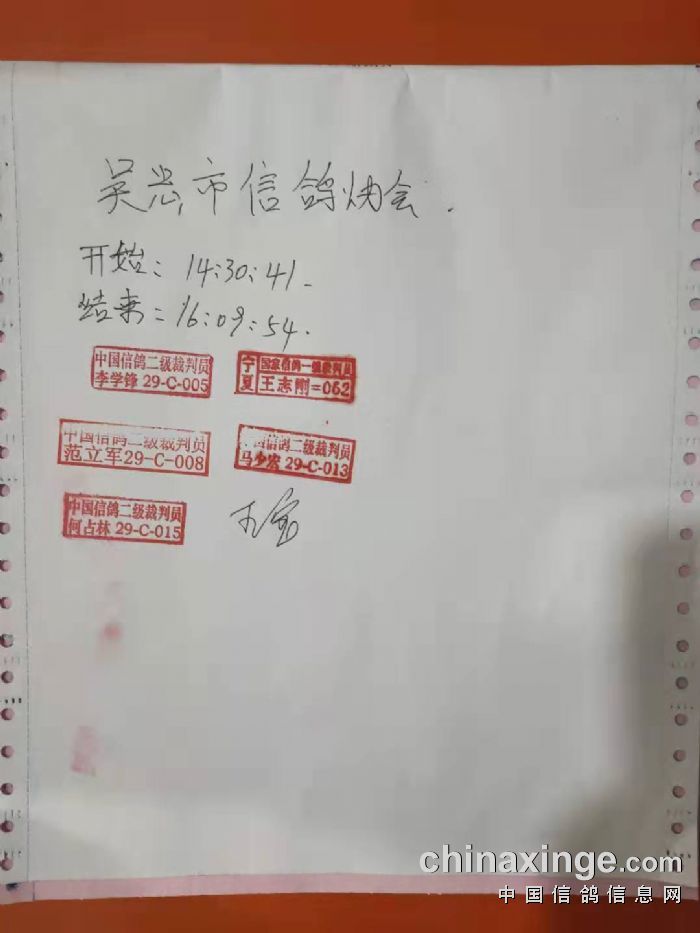 吴忠市信鸽协会.
开始：14:30:41.
结束：16:09:54.
中国信鸽二级裁判员
李学锋 29-C-005
宁夏
国家信鸽一级裁判员
王志刚=062
中国信鸽二级裁判员
范立军29-C-008
国信鸽二级裁判员
马少宏 29-C-013
中国信鸽二级裁判员
何占林 29-C-015
chinaxinge.com
中国信鸽信息网